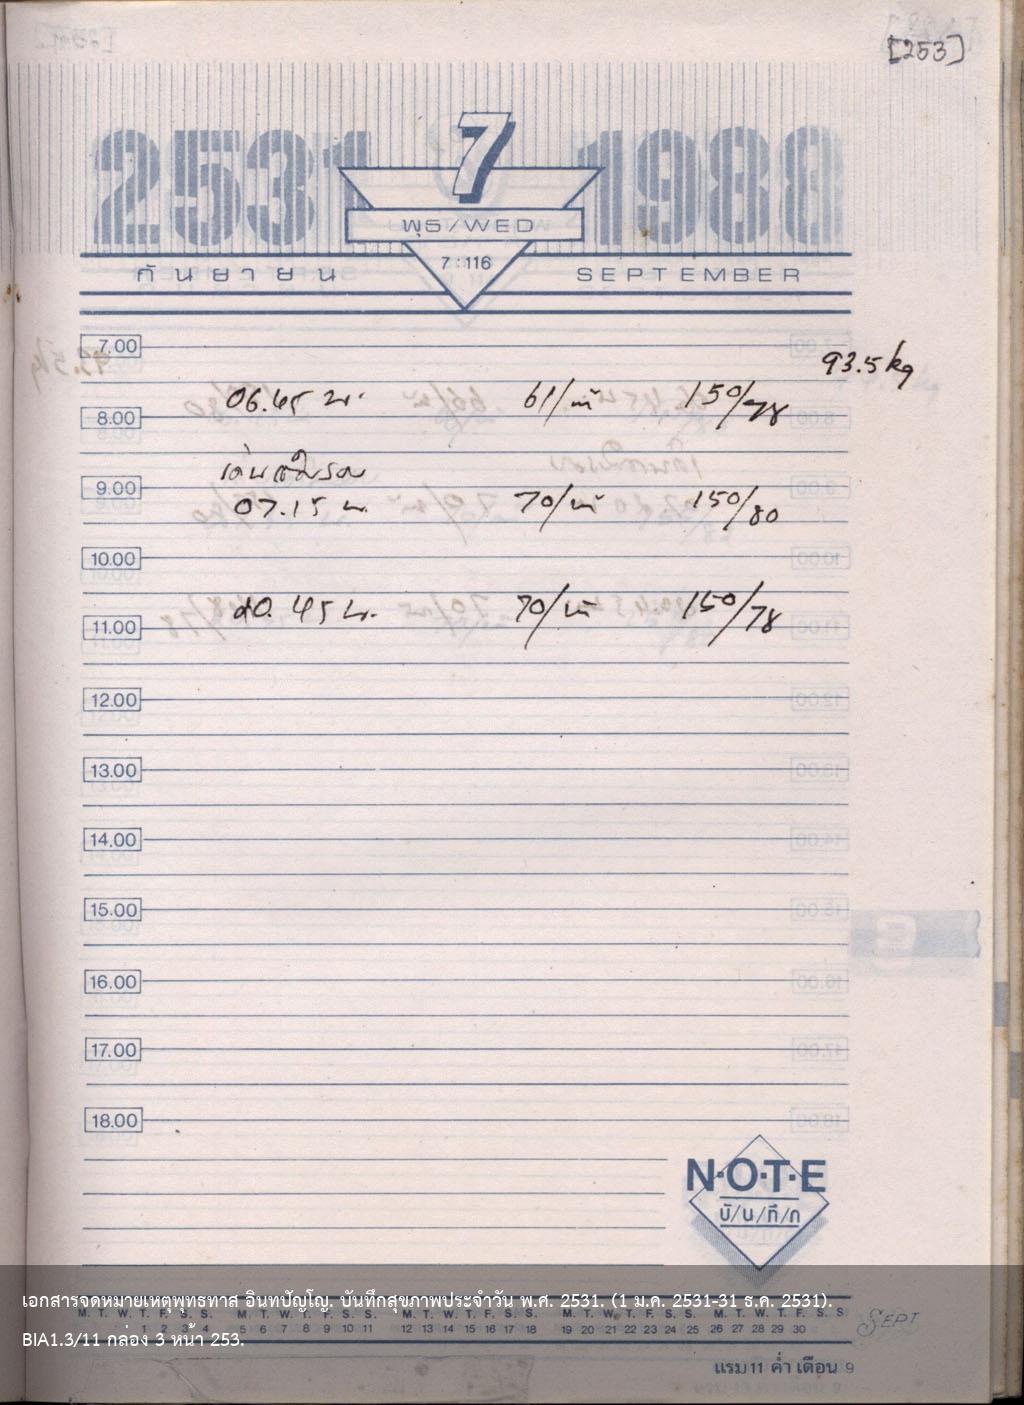 [253]
2531 7 1988
พุธ/WED
7:116
กันยายน SEPTEMBER
7.00
93.5 kg
06.45 น. 61/นาที 150/78
8.00
เดินสมิรอบ
9.00
07.15 น. 70/นาที 150/80
10.00
20.45 น. 70/นาที 150/78
11.00
12.00
13.00
14.00
15.00
16.00
17.00
18.00
N·O·T·E
บั/น/ทึ/ก
เอกสารจดหมายเหตุพุทธทาส อินทปัญโญ. บันทึกสุขภาพประจำวัน พ.ศ. 2531. (1 ม.ค. 2531-31 ธ.ค. 2531).
M. T. W. T. F. S. S. M. T. W. T. F. S. S. M. T. W. T. F. S. S. M. T. W. T. F. S. S. M. T. W. T. F. S. S
1 2 3 4 5 6 7 8 9 10 11 12 13 14 15 16 17 18 19 20 21 22 23 24 25 26 27 28 29 30
SEPT
BIA1.3/11 กล่อง 3 หน้า 253.
แรม 11 ค่ำ เดือน 9